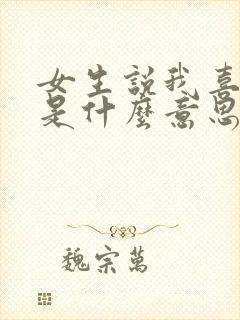 女生説我喜
是什麼意思
魏宗萬